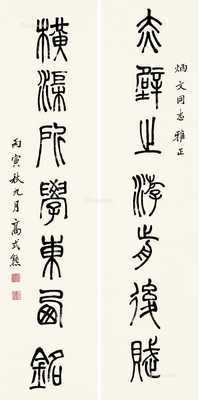 炳文同志雅正
赤壁之游前後賦
橫渠所學東西銘
丙寅秋九月高式熊